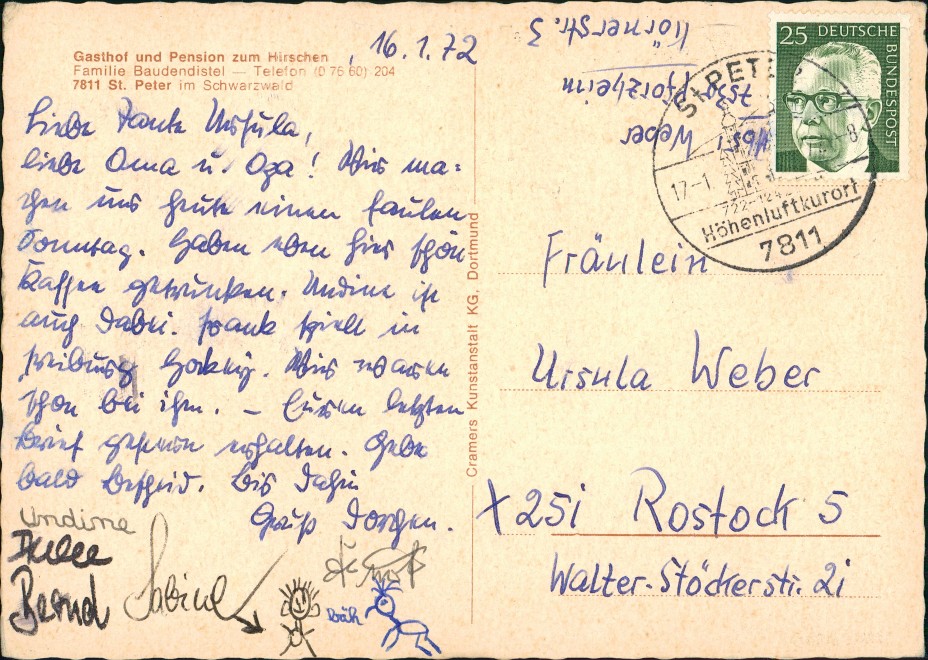 Gasthof und Pension zum Hirschen
Familie Baudendistel — Telefon (0 76 60) 204
7811 St. Peter im Schwarzwald
, 16.1.72
Liebe Tante Ursula,
liebe Oma u. Opa! Wir ma-
chen uns heute einen faulen
Sonntag. Haben eben hier schön
Kaffee getrunken. Undine ist
auch dabei. Frank spielt in
Freiburg Hockey. Wir waren
schon bei ihm. – Euren letzten
Brief gestern erhalten. Gebe
bald Bescheid. Bis dahin
Gruß
Undine
Bernd
Sabine
Bäh
Cramers Kunstanstalt KG, Dortmund
Weber
7530
Pforzheim
Körnerstr. 3
25 DEUTSCHE
BUNDESPOST
St. PETER
17-1
-8
722-1242
Höhenluftkurort
7811
Fräulein
Ursula Weber
X 25i Rostock 5
Walter-Stöckerstr. 2i